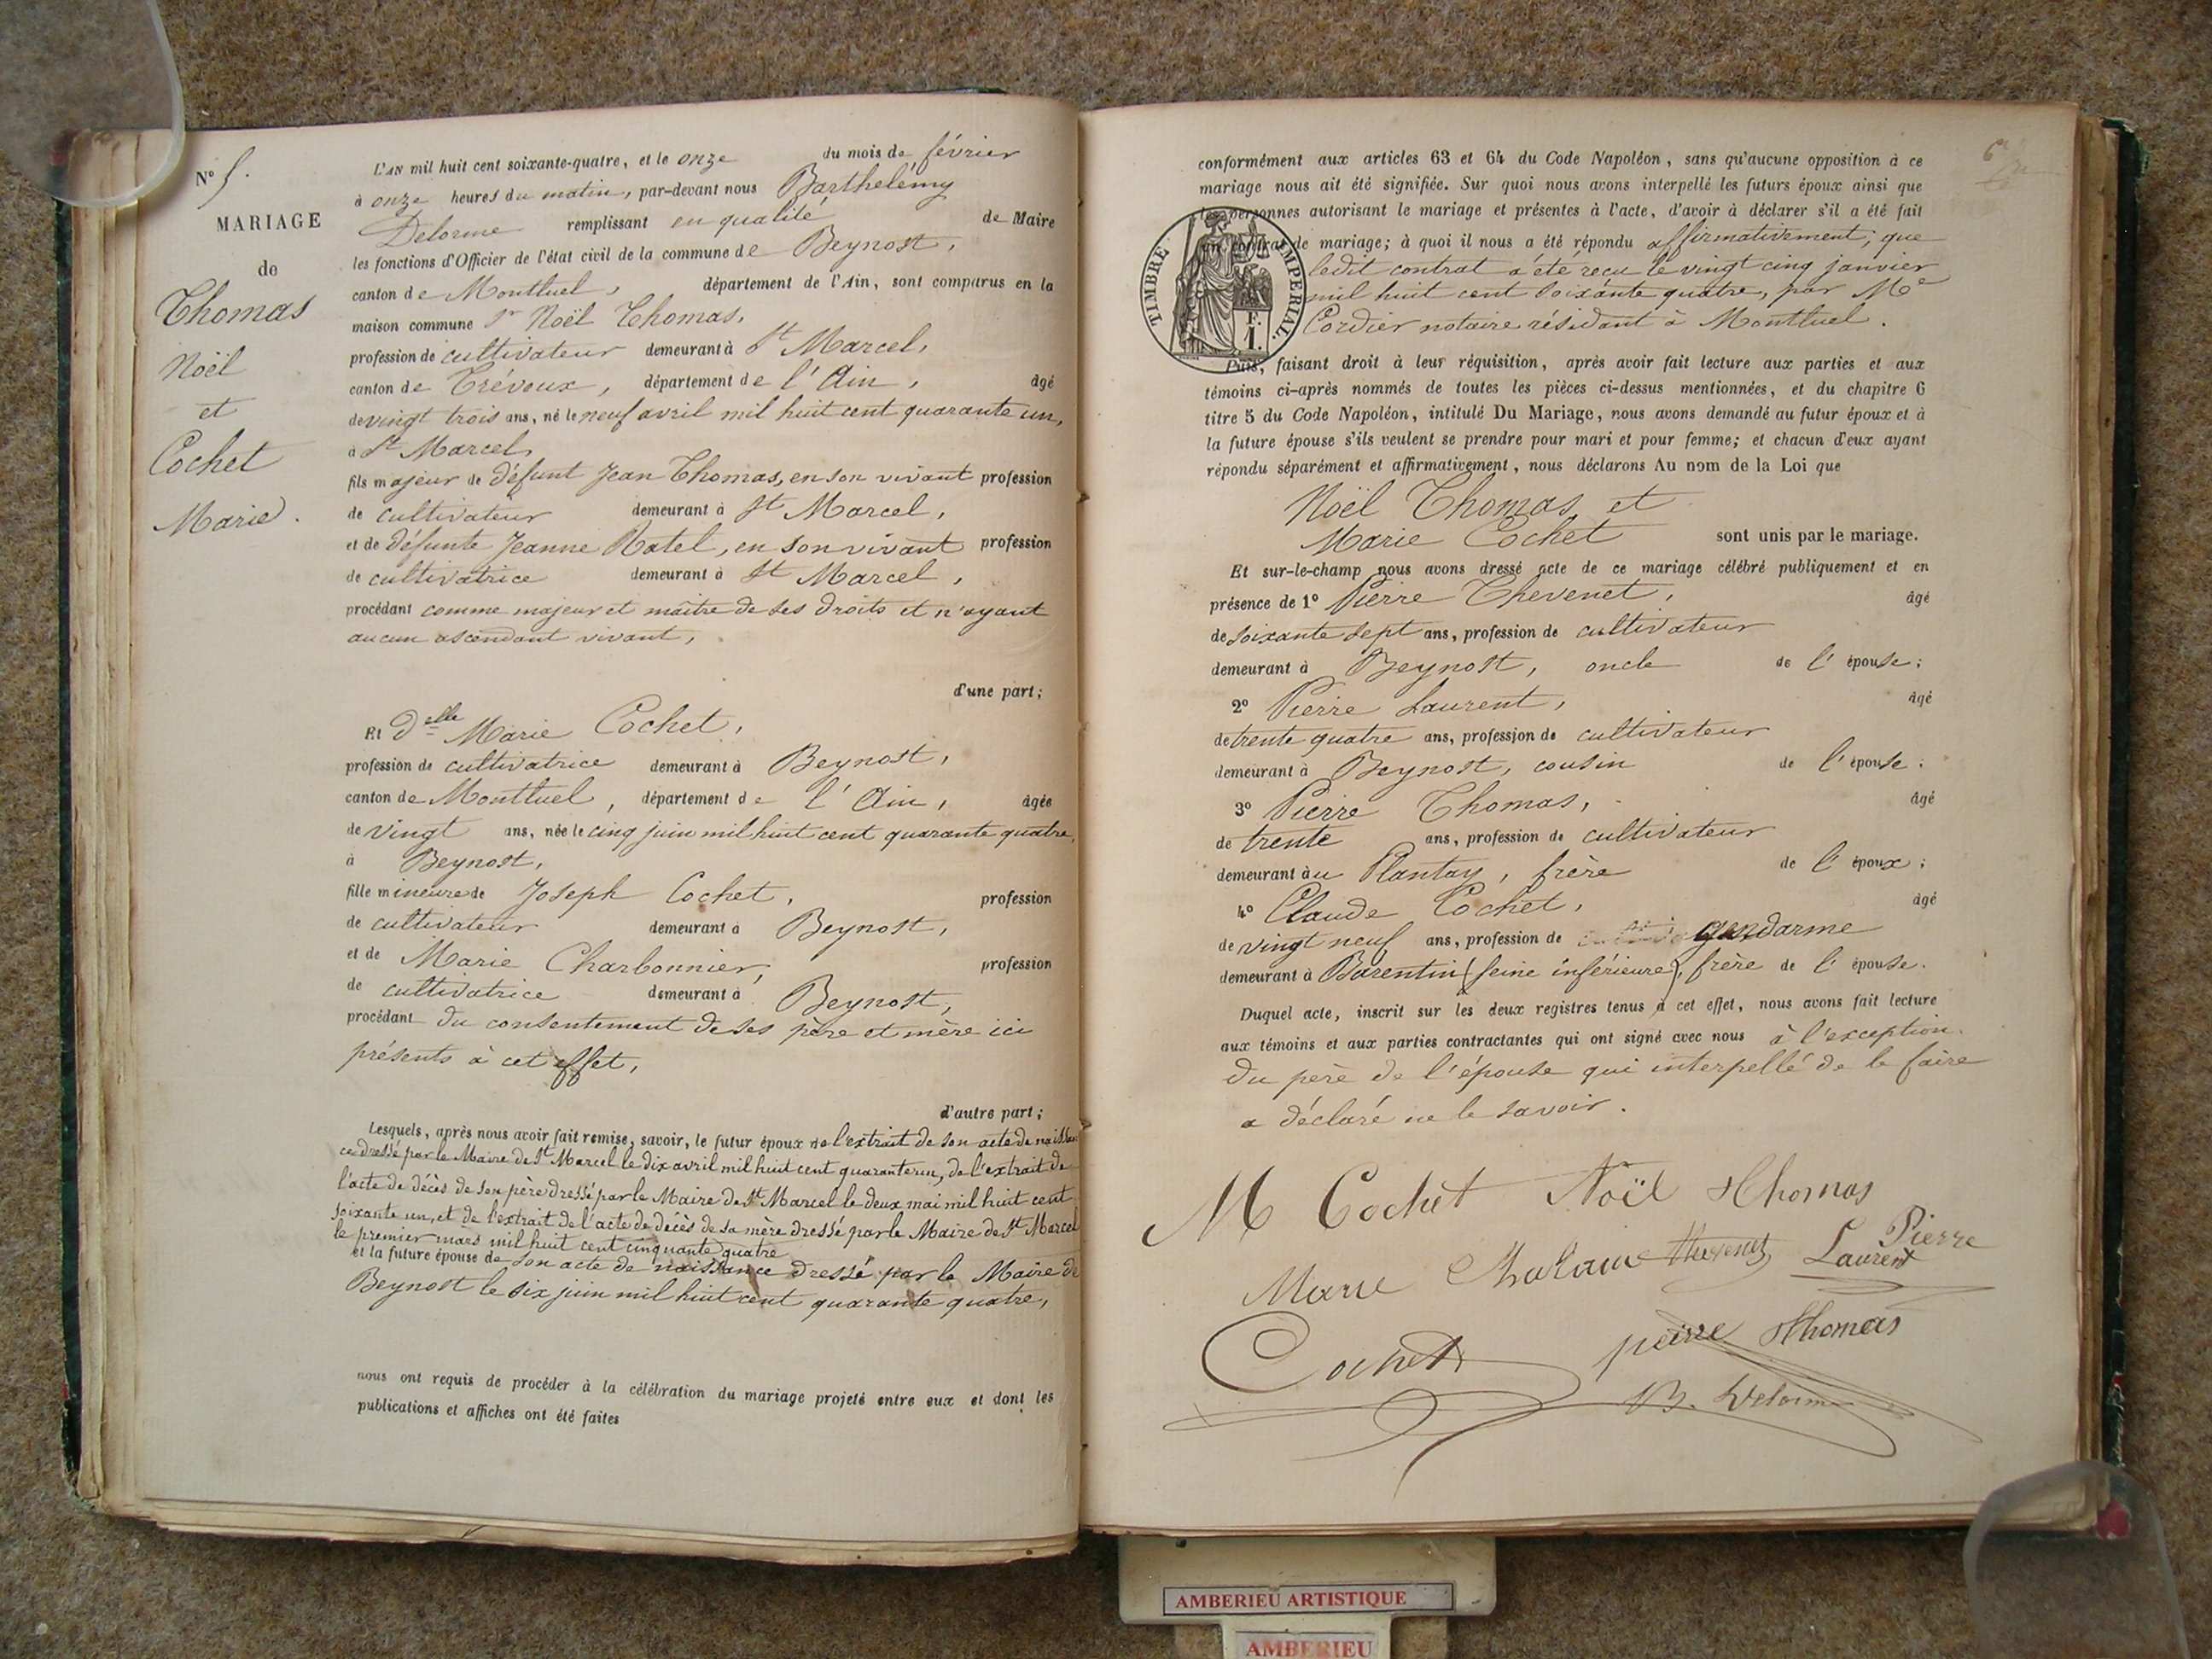 N° 5.
MARIAGE
de
Thomas
Noël
et
Cochet
Marie.
L'AN mil huit cent soixante-quatre, et le onze du mois de février
à onze heures du matin, par-devant nous Barthelemy
Delorme remplissant en qualité de Maire
les fonctions d'Officier de l'état civil de la commune de Beynost,
canton de Montluel, département de l'Ain, sont comparus en la
maison commune Sr Noël Thomas,
profession de cultivateur demeurant à St Marcel,
canton de Trévoux, département de l'Ain, âgé
de vingt trois ans, né le neuf avril mil huit cent quarante un,
à St Marcel,
fils majeur de défunt Jean Thomas, en son vivant profession
de cultivateur demeurant à St Marcel,
et de défunte Jeanne Ratel, en son vivant profession
de cultivatrice demeurant à St Marcel,
procédant comme majeur et maître de ses droits et n'ayant
aucun ascendant vivant,
d'une part;
Et Delle Marie Cochet,
profession de cultivatrice demeurant à Beynost,
canton de Montluel, département de l'Ain, âgée
de vingt ans, née le cinq juin mil huit cent quarante quatre,
à Beynost,
fille mineure de Joseph Cochet, profession
de cultivateur demeurant à Beynost,
et de Marie Charbonnier, profession
de cultivatrice demeurant à Beynost,
procédant du consentement de ses père et mère ici
présents à cet effet,
d'autre part;
Lesquels, après nous avoir fait remise, savoir, le futur époux de l'extrait de son acte de naissan
ce dressé par le Maire de St Marcel le dix avril mil huit cent quarante un, de l'extrait de
l'acte de décès de son père dressé par le Maire de St Marcel le deux mai mil huit cent
soixante un, et de l'extrait de l'acte de décès de sa mère dressé par le Maire de St Marcel
le premier mars mil huit cent cinquante quatre
et la future épouse de son acte de naissance dressé par le Maire de
Beynost le six juin mil huit cent quarante quatre,
nous ont requis de procéder à la célébration du mariage projeté entre eux et dont les
publications et affiches ont été faites
conformément aux articles 63 et 64 du Code Napoléon, sans qu'aucune opposition à ce
mariage nous ait été signifiée. Sur quoi nous avons interpellé les futurs époux ainsi que
les personnes autorisant le mariage et présentes à l'acte, d'avoir à déclarer s'il a été fait
un contrat de mariage; à quoi il nous a été répondu affirmativement; que
ledit contrat a été reçu le vingt cinq janvier
mil huit cent soixante quatre, par Me
Cordier notaire résidant à Montluel.
TIMBRE IMPERIAL.
F.
1.
Puis, faisant droit à leur réquisition, après avoir fait lecture aux parties et aux
témoins ci-après nommés de toutes les pièces ci-dessus mentionnées, et du chapitre 6
titre 5 du Code Napoléon, intitulé Du Mariage, nous avons demandé au futur époux et à
la future épouse s'ils veulent se prendre pour mari et pour femme; et chacun d'eux ayant
répondu séparément et affirmativement, nous déclarons Au nom de la Loi que
Noël Thomas, et
Marie Cochet sont unis par le mariage.
Et sur-le-champ nous avons dressé acte de ce mariage célébré publiquement et en
présence de 1° Pierre Thevenet, âgé
de soixante sept ans, profession de cultivateur
demeurant à Beynost, oncle de l'épouse;
2° Pierre Laurent, âgé
de trente quatre ans, profession de cultivateur
demeurant à Beynost, cousin de l'épouse;
3° Pierre Thomas, âgé
de trente ans, profession de cultivateur
demeurant au Plantay, frère de l'époux;
4° Claude Cochet, âgé
de vingt neuf ans, profession de gendarme
demeurant à Barentin (Seine inférieure), frère de l'épouse.
Duquel acte, inscrit sur les deux registres tenus à cet effet, nous avons fait lecture
aux témoins et aux parties contractantes qui ont signé avec nous à l'exception
du père de l'épouse qui interpellé de le faire
a déclaré ne le savoir.
M Cochet Noël Thomas
Marie Thevenet Pierre
Laurent
Cochet pierre Thomas
B. Delorme
AMBERIEU ARTISTIQUE
AMBERIEU